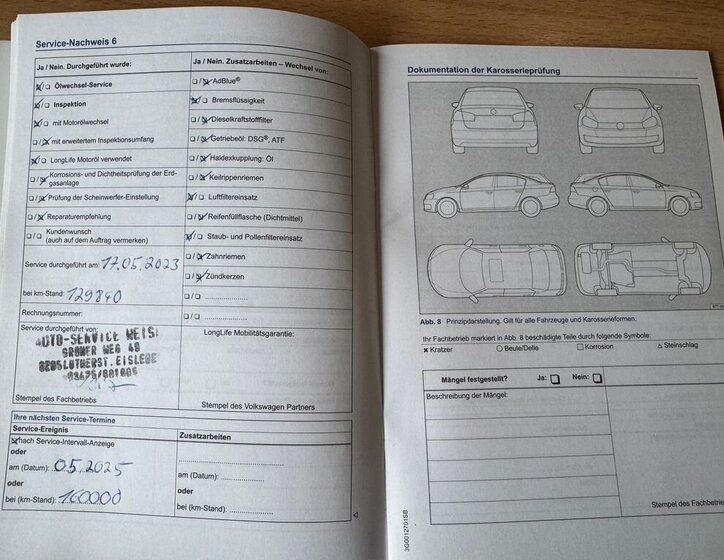 Service-Nachweis 6
Ja / Nein. Durchgeführt wurde:
Ölwechsel-Service
Inspektion
mit Motorölwechsel
mit erweitertem Inspektionsumfang
LongLife Motoröl verwendet
Korrosions- und Dichtheitsprüfung der Erd-
gasanlage
Prüfung der Scheinwerfer-Einstellung
Reparaturempfehlung
Kundenwunsch
(auch auf dem Auftrag vermerken)
Service durchgeführt am: 17.05.2023
bei km-Stand: 129840
Rechnungsnummer:
Service durchgeführt von:
AUTO-SERVICE
WEG 40
LUTHERST. EISLEBE
Stempel des Fachbetriebs
Ja / Nein. Zusatzarbeiten – Wechsel von:
AdBlue®
Bremsflüssigkeit
Dieselkraftstofffilter
Getriebeöl: DSG®, ATF
Haldexkupplung: Öl
Keilrippenriemen
Luftfiltereinsatz
Reifenfüllflasche (Dichtmittel)
Staub- und Pollenfiltereinsatz
Zahnriemen
Zündkerzen
LongLife Mobilitätsgarantie:
Stempel des Volkswagen Partners
Ihre nächsten Service-Termine
Service-Ereignis
nach Service-Intervall-Anzeige
oder
am (Datum): 05.2025
oder
bei (km-Stand): 160000
Zusatzarbeiten
am (Datum):
oder
bei (km-Stand):
Dokumentation der Karosserieprüfung
Abb. 8 Prinzipdarstellung. Gilt für alle Fahrzeuge und Karosserieformen.
Ihr Fachbetrieb markiert in Abb. 8 beschädigte Teile durch folgende Symbole:
x Kratzer ○ Beule/Delle □ Korrosion △ Steinschlag
Mängel festgestellt? Ja: Nein:
Beschreibung der Mängel:
Stempel des Fachbetrie
3G0012701SB